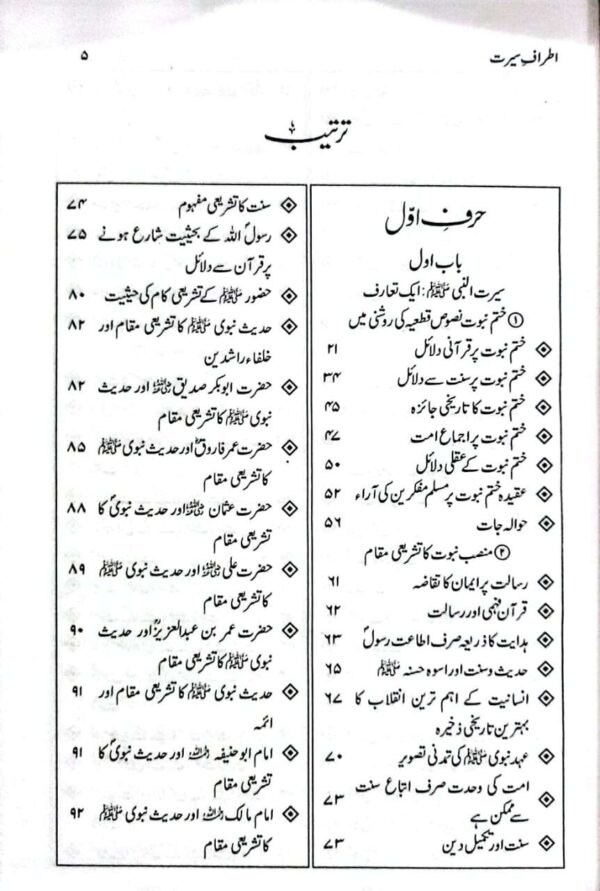 اطرافِ سیرت ۵
ترتیب
حرفِ اوّل
باب اول
سیرت النبی ﷺ: ایک تعارف
① ختم نبوت نصوص قطعیہ کی روشنی میں
ختم نبوت پر قرآنی دلائل ۲۱
ختم نبوت پر سنت سے دلائل ۳۴
ختم نبوت کا تاریخی جائزہ ۴۵
ختم نبوت پر اجماع امت ۴۷
ختم نبوت کے عقلی دلائل ۵۰
عقیدہ ختم نبوت پر مسلم مفکرین کی آراء ۵۲
حوالہ جات ۵۶
② منصب نبوت کا تشریعی مقام
رسالت پر ایمان کا تقاضہ ۶۱
قرآن فہمی اور رسالت ۶۲
ہدایت کا ذریعہ صرف اطاعت رسولؐ ۶۳
حدیث و سنت اور اسوہ حسنہ ﷺ ۶۵
انسانیت کے اہم ترین انقلاب کا ۶۷
بہترین تاریخی ذخیرہ
عہد نبوی ﷺ کی تمدنی تصویر ۷۰
امت کی وحدت صرف اتباع سنت ۷۳
سے ممکن ہے
سنت اور تکمیل دین ۷۳
سنت کا تشریعی مفہوم ۷۴
رسولؐ اللہ کے بحیثیت شارع ہونے ۷۵
پر قرآن سے دلائل
حضور ﷺ کے تشریعی کام کی حیثیت ۸۰
حدیث نبوی ﷺ کا تشریعی مقام اور ۸۲
خلفاء راشدین
حضرت ابوبکر صدیق رضی اللہ عنہ اور حدیث ۸۲
نبوی ﷺ کا تشریعی مقام
حضرت عمر فاروقؓ اور حدیث نبوی ﷺ ۸۵
کا تشریعی مقام
حضرت عثمان رضی اللہ عنہ اور حدیث نبویؐ کا ۸۸
تشریعی مقام
حضرت علی رضی اللہ عنہ اور حدیث نبوی ﷺ ۸۹
کا تشریعی مقام
حضرت عمر بن عبدالعزیزؒ اور حدیث ۹۰
نبوی ﷺ کا تشریعی مقام
حدیث نبوی ﷺ کا تشریعی مقام اور ۹۱
ائمہ
امام ابوحنیفہ رحمہ اللہ اور حدیث نبویؐ کا ۹۱
تشریعی مقام
امام مالک رحمہ اللہ اور حدیث نبوی ﷺ ۹۲
کا تشریعی مقام